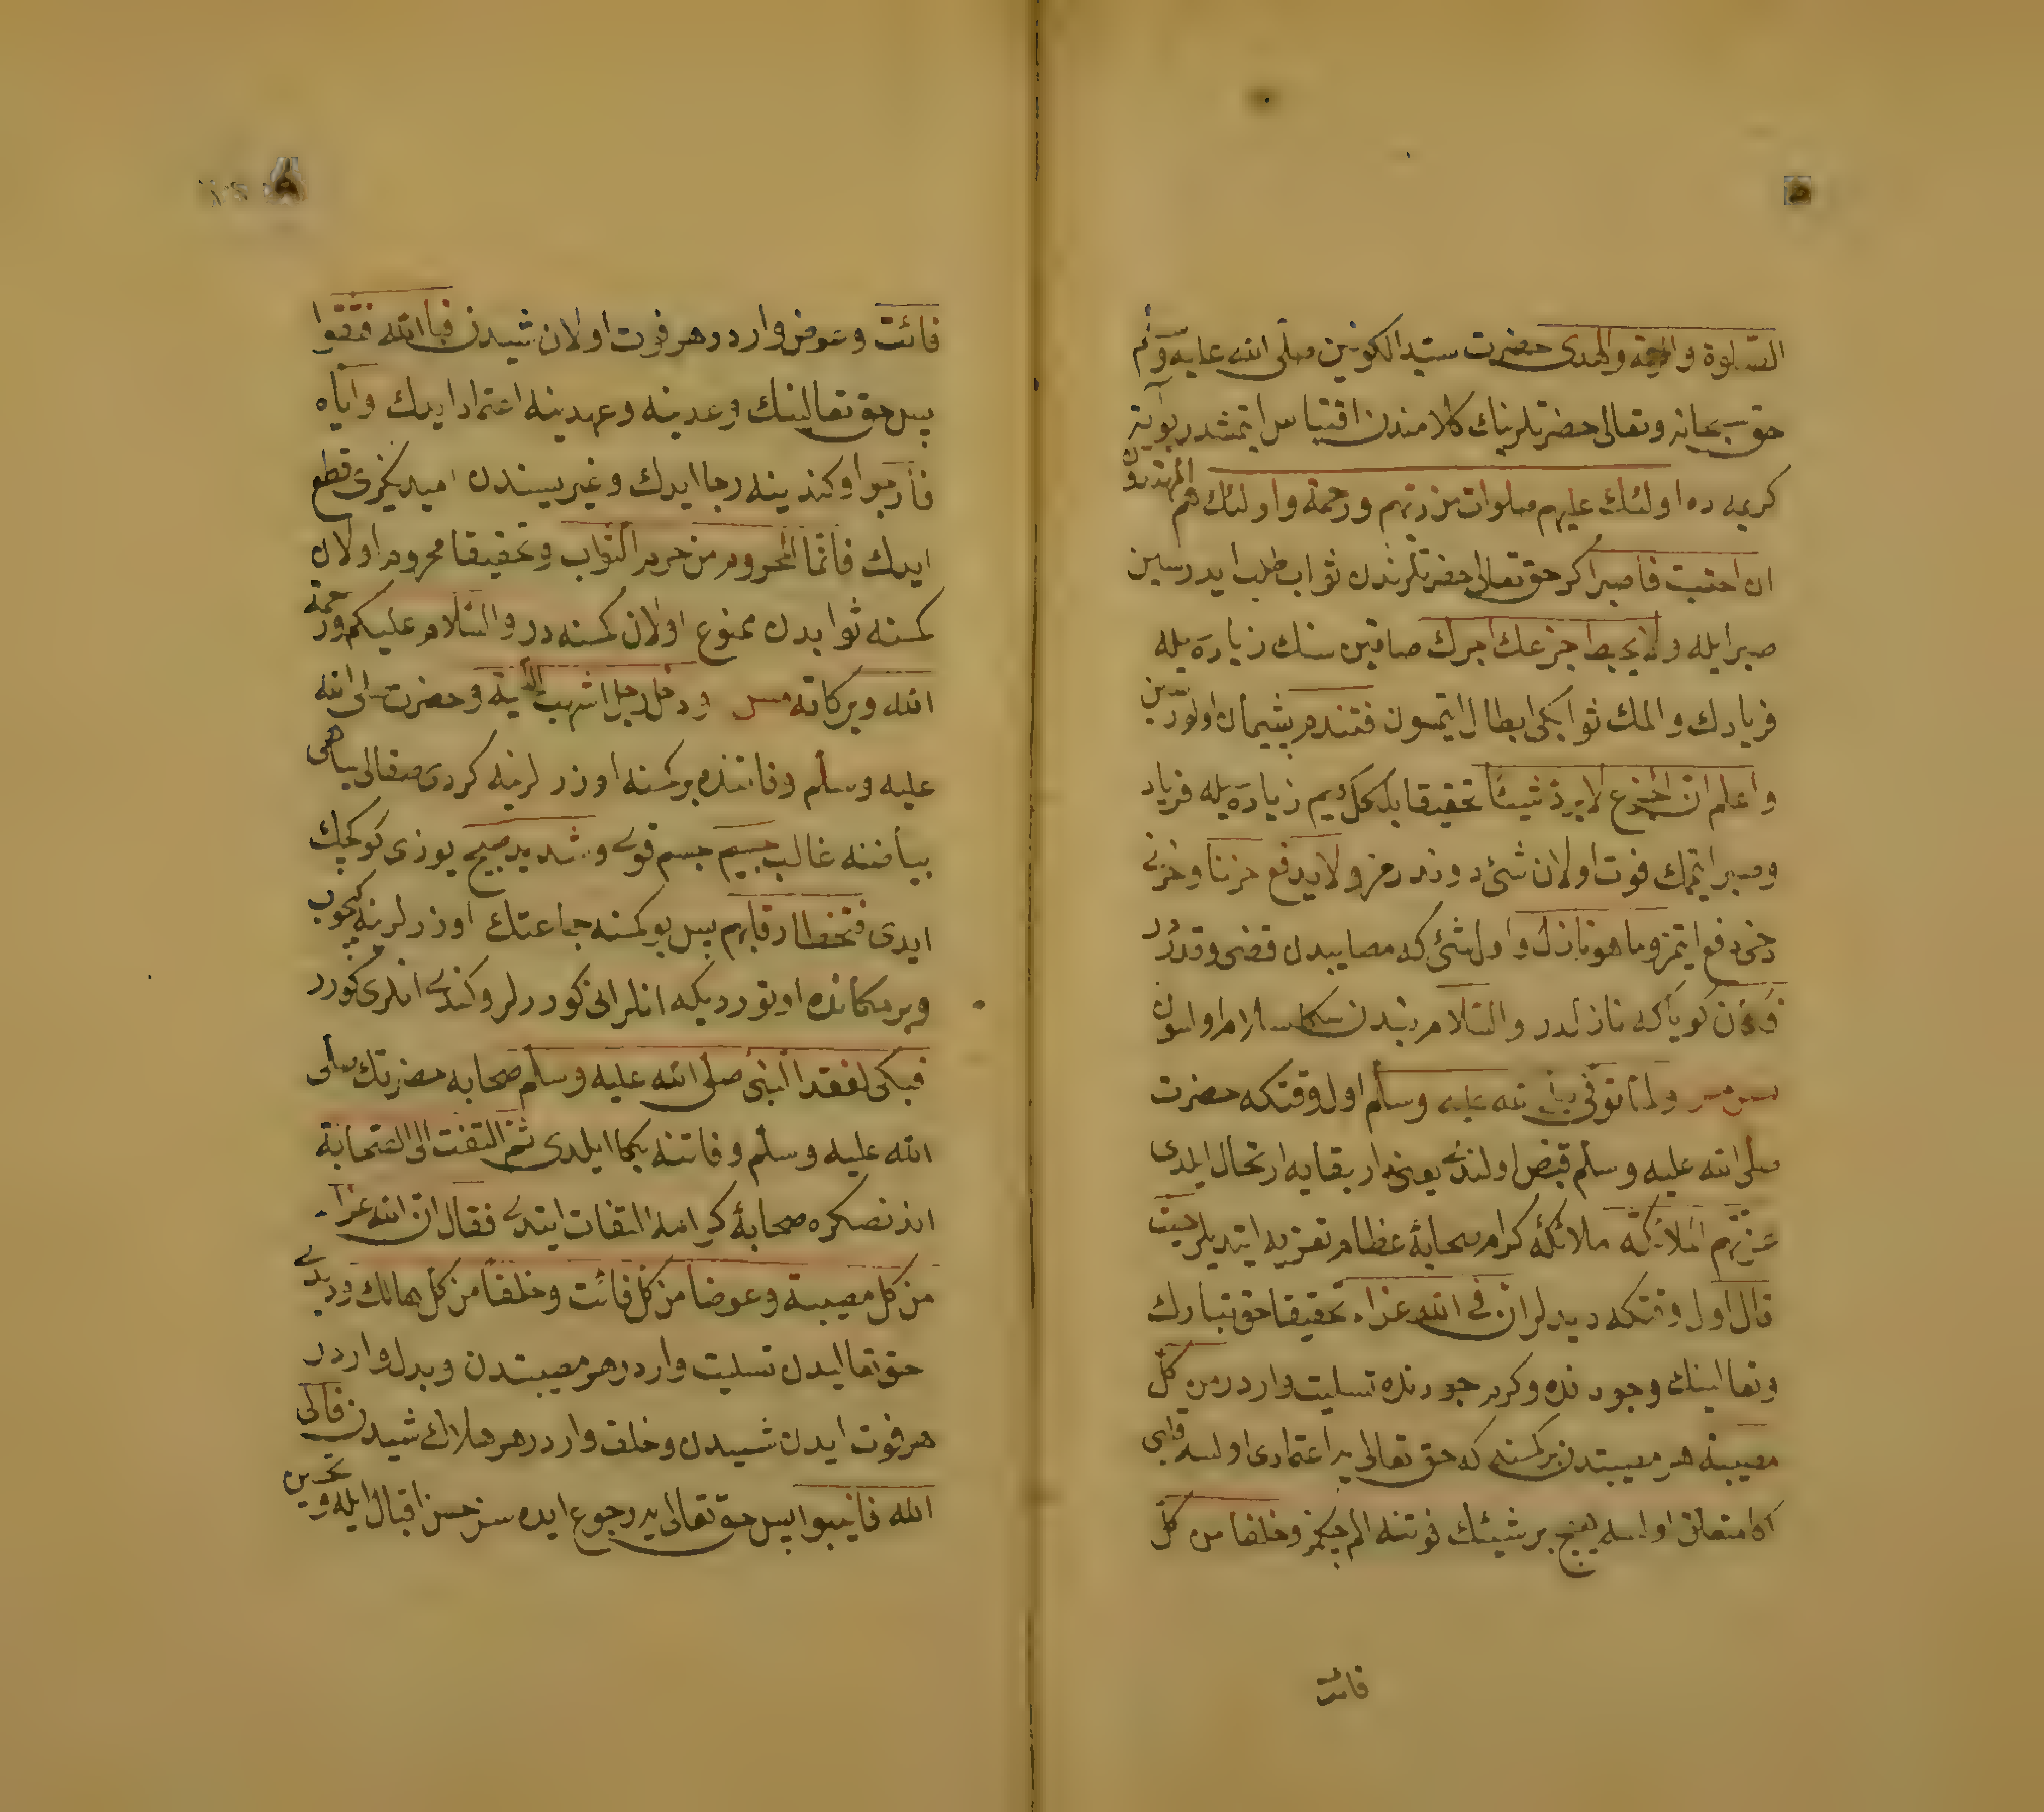 الصّلوة والرحمة والهدى حضرت سيّد الكونين صلّى الله عليه وسلّم
حق سبحانه وتعالى حضرتلرينك كلامندن اقتباس ايتمشدر بو آيت
كريمه ده اولئك عليهم صلوات من ربّهم ورحمة واولئك هم المهتدون
ان احتسبت فاصبر اكر حق تعالى حضرتلرندن ثواب طلب ايدرسين
صبر ايله ولا يحبط جزعك اجرك صاقين سنك زياده يله
فرياد ك والمك ثوابكى ابطال ايتمسون فتندم پشيمان اولورسين
واعلم انّ الجزع لا يردّ شيئًا تحقيقا بلكل كيم زياده يله فرياد
وصبر ايتممك فوت اولان شئ دوندرمز ولا يدفع حزنا وحزنى
دخى دفع ايتمز وما هو نازل واول شئ كه مصايبدن قضى وقدردر
فكأن كويا كه نازلدر والسّلام بندن سكا سلام اولسون
ولمّا توفّى صلى الله عليه وسلّم اول وقتكه حضرت
صلى الله عليه وسلّم قبض اولندى يعنى دار بقايه ارتحال ايلدى
عزّتهم الملائكة ملائكۀ كرام صحابۀ عظامه تعزيه ايتديلر حيث
قال اول وقتكه ديديلر انّ فى الله عزاء تحقيقا حق تبارك
وتعالينك وجودنده وكرم جودنده تسليت واردر من كلّ
مصيبة هر مصيبتدن بر كمسنه كه حق تعالى يه اعتمادى اولسه وانى
اكا متعلق اولسه هيچ بر شيئك فوتنه الم چكمز وخلفا من كلّ
فائت
فائت وعوض واردر هر فوت اولان شيدن فباالله فثقوا
پس حق تعالينك وعدينه وعهدينه اعتماد ايدك وايّاه
فارجوا وكندينه رجا ايدك وغيريسندن اميديكزى قطع
ايدك فانّما المحروم من حرم الثّواب وتحقيقا محروم اولان
كمسنه ثوابدن ممنوع اولان كمسنه در والسّلام عليكم ورحمة
الله وبركاته ودخل رجل اشهب اللّحية وحضرت صلى الله
عليه وسلّم وفاتنده بر كمسنه اوزرلرينه كردى صقالى بياض
بياضنه غالب جسيم جسم قوى وشديد صبيح يوزى كوكچك
ايدى فتخطا رقابهم پس بو كمسنه جماعتك اوزرلرينه كچوب
وبر مكانده اوتورديكه انلر انى كوررلر وكندى انلرى كورر
فبكى لفقد النّبى صلى الله عليه وسلّم صحابه حضرتك صلى
الله عليه وسلّم وفاتنه بكا ايلدى ثمّ التفت الى الصّحابة
اندنصكره صحابۀ كرامه التفات ايتدى فقال انّ الله عزاء
من كل مصيبة وعوضا من كلّ فائت وخلفًا من كلّ هالك وديدى
حق تعاليدن تسليت واردر هر مصيبتدن وبدل واردر
هر فوت ايدن شييدن وخلف واردر هر هلاك شيدن فالى
الله فانيبوا پس حق تعالى يه رجوع ايده سز حسن اقبال ايله